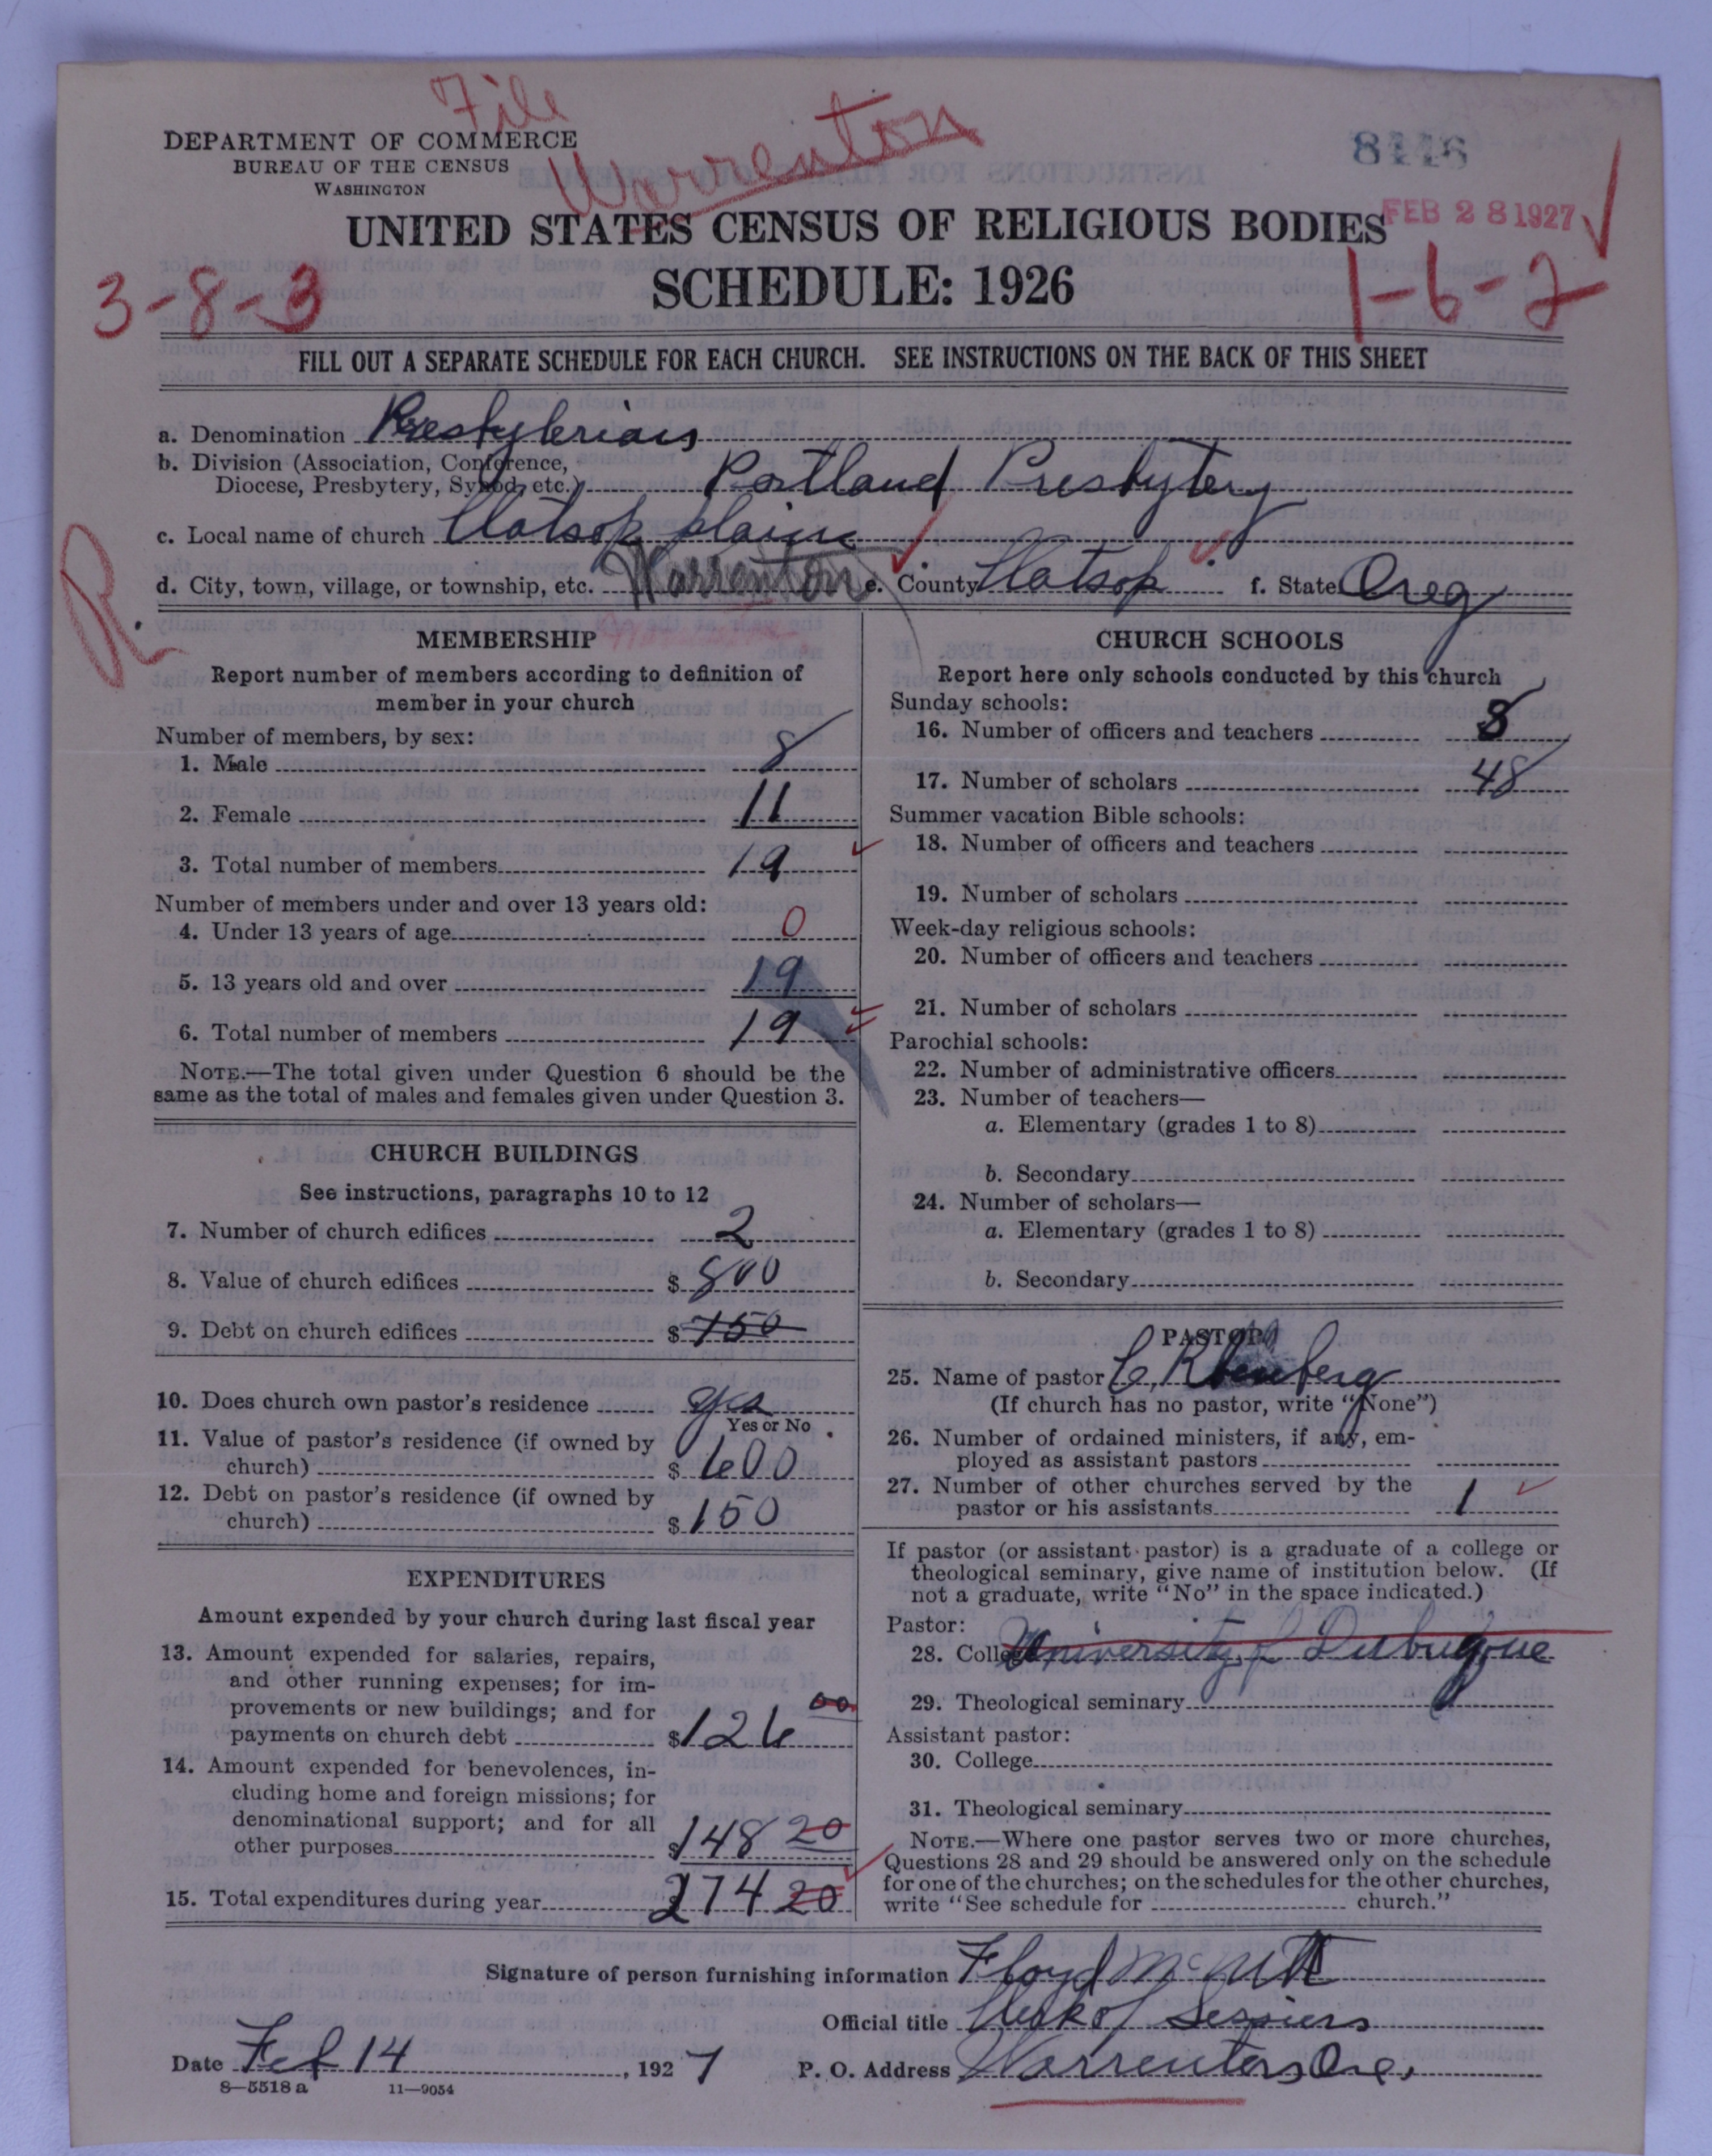 File
Warrenton
DEPARTMENT OF COMMERCE
BUREAU OF THE CENSUS
WASHINGTON
FEB 28 1927
UNITED STATES CENSUS OF RELIGIOUS BODIES
SCHEDULE: 1926
3-8-3
1-6-2
FILL OUT A SEPARATE SCHEDULE FOR EACH CHURCH. SEE INSTRUCTIONS ON THE BACK OF THIS SHEET
a. Denomination Presbyterian
b. Division (Association, Conference,
Diocese, Presbytery, Synod, etc.) Portland Presbytery
c. Local name of church Clatsop plains
d. City, town, village, or township, etc. Warrenton e. County Clatsop f. State Oreg
R.
MEMBERSHIP
Report number of members according to definition of
member in your church
Number of members, by sex:
1. Male 8
2. Female 11
3. Total number of members 19
Number of members under and over 13 years old:
4. Under 13 years of age 0
5. 13 years old and over 19
6. Total number of members 19
NOTE.—The total given under Question 6 should be the
same as the total of males and females given under Question 3.
CHURCH BUILDINGS
See instructions, paragraphs 10 to 12
7. Number of church edifices 2
8. Value of church edifices $ 800
9. Debt on church edifices $ 750
10. Does church own pastor's residence yes
Yes or No
11. Value of pastor's residence (if owned by
church) $ 600
12. Debt on pastor's residence (if owned by
church) $ 150
EXPENDITURES
Amount expended by your church during last fiscal year
13. Amount expended for salaries, repairs,
and other running expenses; for im-
provements or new buildings; and for
payments on church debt $ 126 00
14. Amount expended for benevolences, in-
cluding home and foreign missions; for
denominational support; and for all
other purposes $ 148 20
15. Total expenditures during year $ 274 20
CHURCH SCHOOLS
Report here only schools conducted by this church
Sunday schools:
16. Number of officers and teachers 8
17. Number of scholars 48
Summer vacation Bible schools:
18. Number of officers and teachers
19. Number of scholars
Week-day religious schools:
20. Number of officers and teachers
21. Number of scholars
Parochial schools:
22. Number of administrative officers
23. Number of teachers—
a. Elementary (grades 1 to 8)
b. Secondary
24. Number of scholars—
a. Elementary (grades 1 to 8)
b. Secondary
PASTOR
25. Name of pastor C.
(If church has no pastor, write "None")
26. Number of ordained ministers, if any, em-
ployed as assistant pastors
27. Number of other churches served by the
pastor or his assistants 1
If pastor (or assistant pastor) is a graduate of a college or
theological seminary, give name of institution below. (If
not a graduate, write "No" in the space indicated.)
Pastor:
28. College University of Dubuque
29. Theological seminary
Assistant pastor:
30. College
31. Theological seminary
NOTE.—Where one pastor serves two or more churches,
Questions 28 and 29 should be answered only on the schedule
for one of the churches; on the schedules for the other churches,
write "See schedule for church."
Signature of person furnishing information Floyd
Official title Clerk of Sessions
Date Feb 14, 1927 P. O. Address Warrenton, Ore.
8—5518 a 11—9054